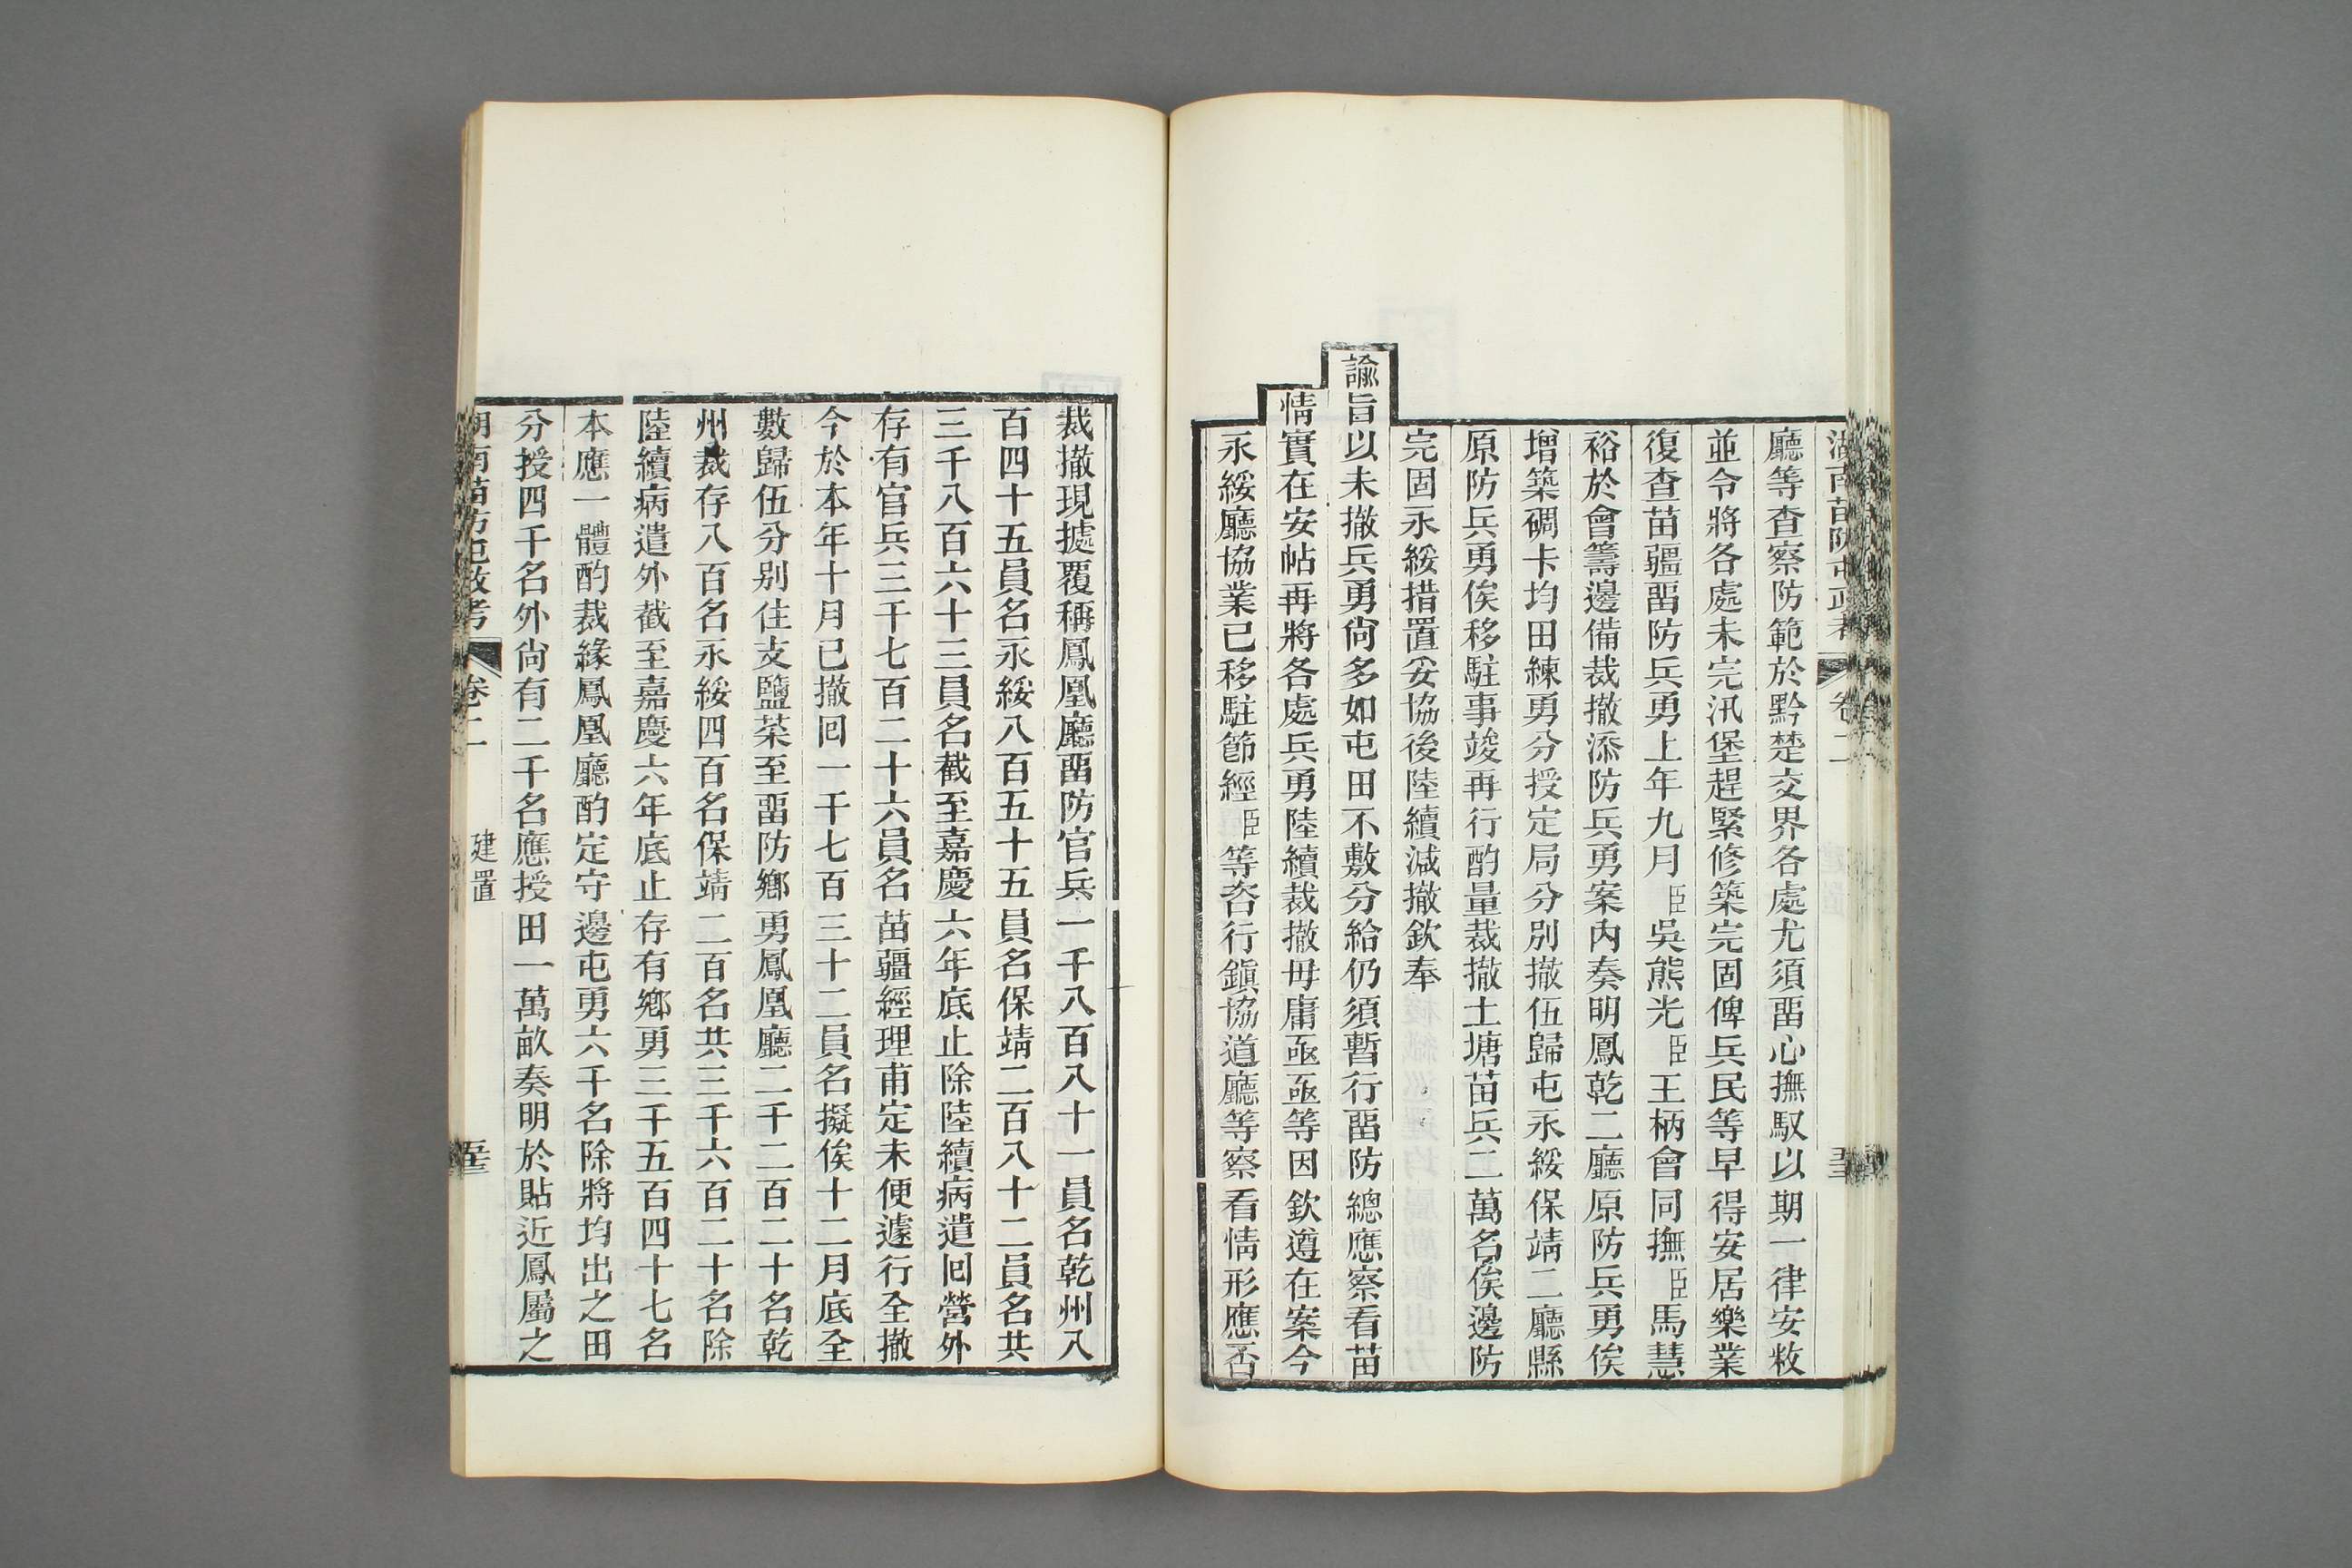 湖南苗防屯政考 卷二
廳等查察防範於黔楚交界各處尤須畱心撫馭以期一律安敉
並令將各處未完汛堡趕緊修築完固俾兵民等早得安居樂業
復查苗疆畱防兵勇上年九月臣吳熊光臣王柄會同撫臣馬慧
裕於會籌邊備裁撤添防兵勇案內奏明鳳乾二廳原防兵勇俟
增築碉卡均田練勇分授定局分別撤伍歸屯永綏保靖二廳縣
原防兵勇俟移駐事竣再行酌量裁撤土塘苗兵二萬名俟邊防
完固永綏措置妥協後陸續減撤欽奉
諭旨以未撤兵勇尙多如屯田不敷分給仍須暫行畱防總應察看苗
情實在安帖再將各處兵勇陸續裁撤毋庸亟亟等因欽遵在案今
永綏廳協業已移駐節經臣等咨行鎭協道廳等察看情形應否
裁撤現據覆稱鳳凰廳畱防官兵一千八百八十一員名乾州八
百四十五員名永綏八百五十五員名保靖二百八十二員名共
三千八百六十三員名截至嘉慶六年底止除陸續病遣囘營外
存有官兵三千七百二十六員名苗疆經理甫定未便遽行全撤
今於本年十月已撤囘一千七百三十二員名擬俟十二月底全
數歸伍分別住支鹽菜至畱防鄉勇鳳凰廳二千二百二十名乾
州裁存八百名永綏四百名保靖二百名共三千六百二十名除
陸續病遣外截至嘉慶六年底止存有鄉勇三千五百四十七名
本應一體酌裁緣鳳凰廳酌定守邊屯勇六千名除將均出之田
分授四千名外尙有二千名應授田一萬畝奏明於貼近鳳屬之
湖南苗防屯政考 卷二 建置